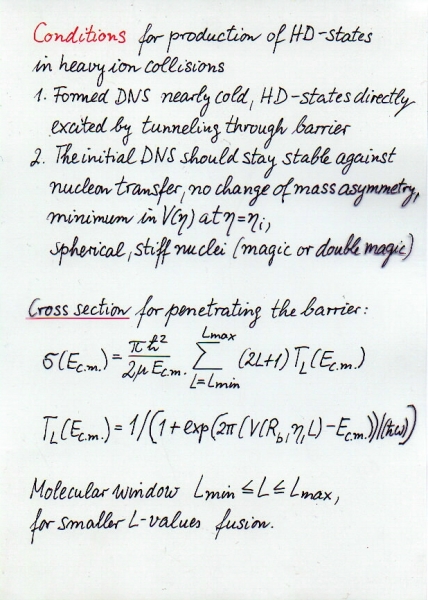 Conditions for production of HD-states
in heavy ion collisions
1. Formed DNS nearly cold, HD-states directly
excited by tunneling through barrier
2. The initial DNS should stay stable against
nucleon transfer, no change of mass asymmetry,
minimum in V(η) at η=ηi,
spherical, stiff nuclei (magic or double magic)
Cross section for penetrating the barrier:
σ(Ec.m.) = πħ²/(2μ Ec.m.) Σ_{L=Lmin}^{Lmax} (2L+1) T_L(Ec.m.)
T_L(Ec.m.) = 1/(1+exp(2π(V(R_b,η,L)-Ec.m.)/(ħω)))
Molecular window Lmin ≤ L ≤ Lmax,
for smaller L-values fusion.